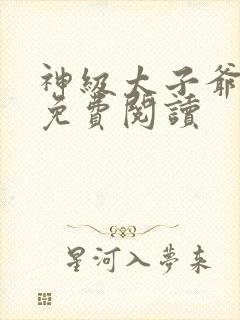 神級大子爺
免費閱讀
星河入夢來